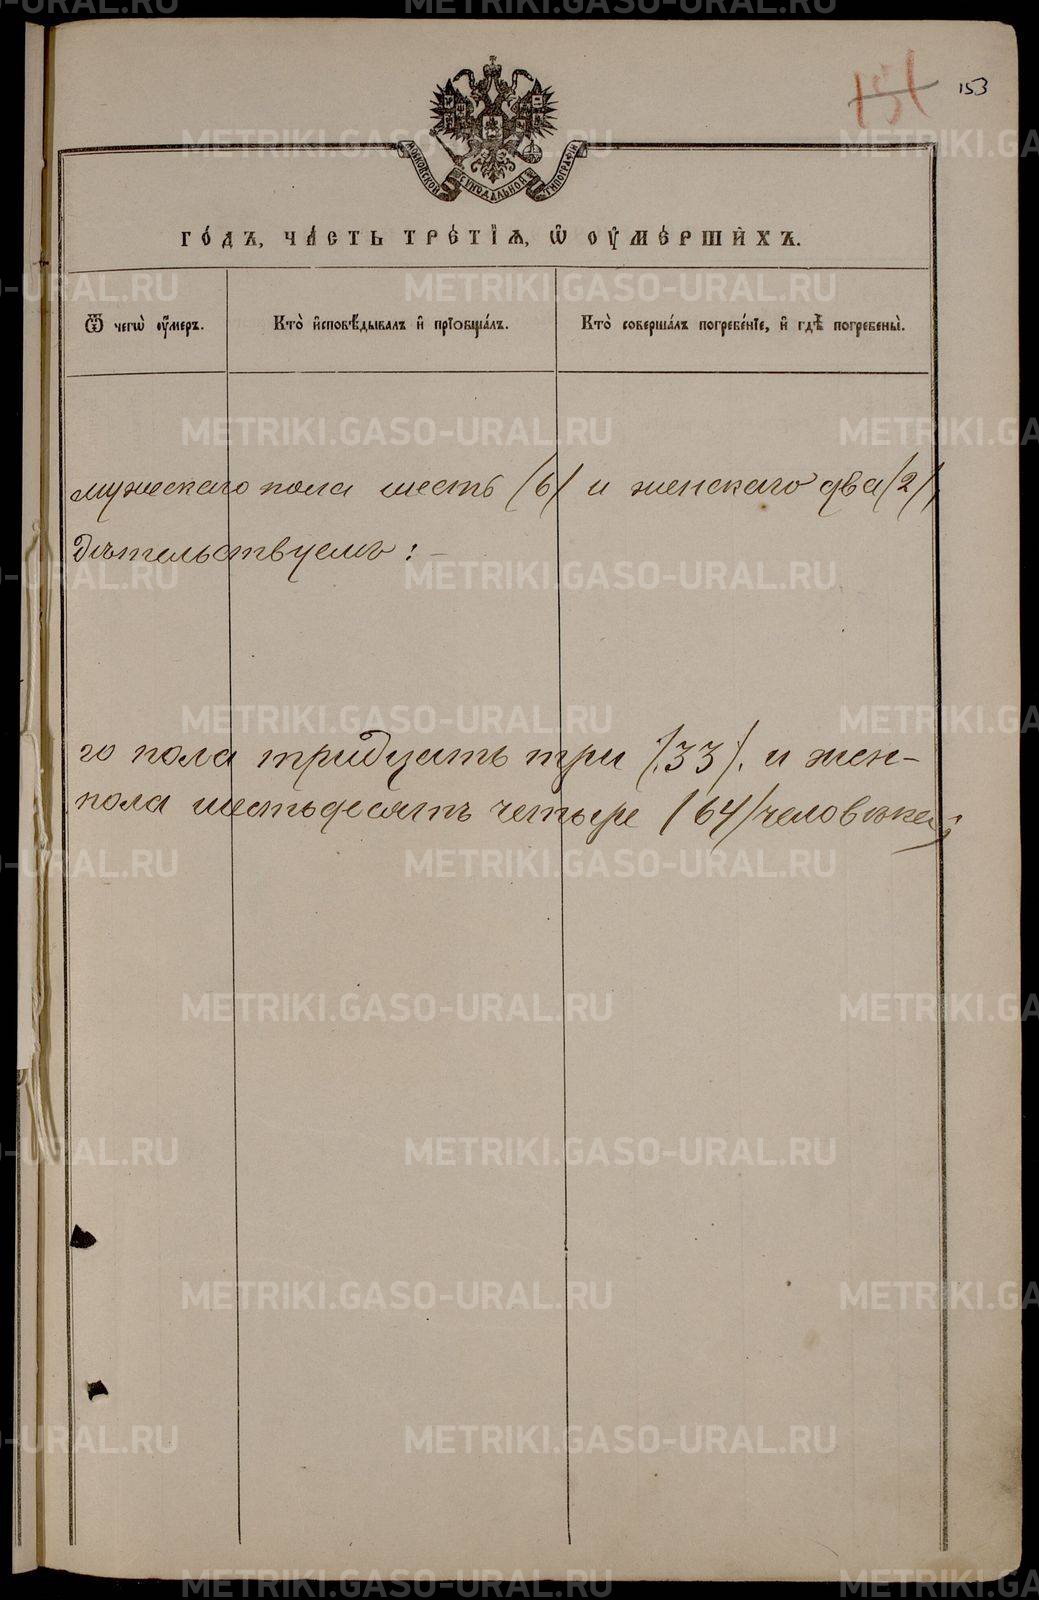 151
153
МОСКОВСКОЙ СѴНОДАЛЬНОЙ ТИПОГРАФІИ
ГО́ДЪ, ЧА́СТЬ ТРЕ́ТІѦ, Ѡ҆ ОУ҆МЕ́РШИХЪ.
Ѿ чегѡ̀ оу҆́меръ.
Кто̀ и҆сповѣ́дывалъ и҆ прїобща́лъ.
Кто̀ соверша́лъ погребе́нїе, и҆ гдѣ̀ погребены̀.
мужескаго пола шесть /6/ и женскаго два /2/,
дѣтельствуемъ: —
го пола тридцать три /.33/. и жен-
пола шестьдесятъ четыре /64/ человѣка;
METRIKI.GASO-URAL.RU